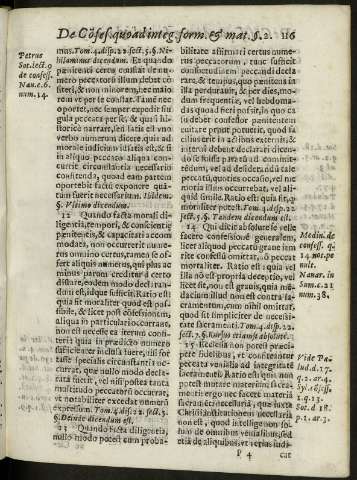 De Cõfes. quoad integ. form. & mat. §. 2. 116
Petrus
Sot. lect. 9
de confess.
Nau. c. 6.
num. 14.
mus. Tom. 4. disp. 22. sect. 5. §. Ni-
hilominus dicendum. Et quando
pœnitenti certo constat de nu-
mero peccatorum illum debet cõ-
fiteri, nec minorem, nec maio
rem vt per se constat. Tamẽ non o-
portet, nec semper expedit sin-
gula peccata per se, & quasi hi-
storicè narrare, sed satis est vno
verbo numerum dicere quia mo
rale indicium id satis est, & si
in aliquo peccato aliqua con-
currit circumstantia necessariò
confitenda, quoad eam partem
oportebit factũ exponere quã-
tum fuerit necessarium. Ibidem
§. Vltimo dicendum.
12 Quando facta morali di-
ligentia, tempori, & conscientiæ
pœnitentis, & capacitati accom
modata, non occurrerit numerus
omnino certus, tamen se of-
fert aliquis numerus, qui plus ac
minus parum creditur à certo
distare, eodem modo declaran-
dus est, idque sufficit. Ratio est
quia fit moraliter quod est pos-
sibile, & licet post cõfessionem,
aliqua in particulari occurrant,
non est necesse ea iterum confi-
teri quia in numero confusio
sufficienter inclusa fuere, nisi for
tasse specialis circumstantia oc-
currat, quæ nullo modo decla-
rata fuerit, vel nisi postea tanta
multitudo peccatorũ occurrat,
vt notabiliter excedat numerũ
expressum. Tom. 4. disp. 22. sect. 5.
§. Deinde dicendum est.
13 Quando facta diligentia,
nullo modo potest cum proba-
bilitate affirmari certus nume-
rus peccatorum, tunc sufficit
consuetudinem peccandi decla
rare, & tempus, quo perduravit,
& si fuerit ferè per dies, mo-
dum frequentiæ, vel hebdoma-
das quoad fieri possit, in quo ca
su debet Confessor pœnitentem
iuuare prout potuerit, quod fa
ciliùs erit in actibus externis, in
internis autem, quia difficiliùs
id est, satis erit vt dicat id com-
mittendum, vel ad dicta talẽ pec
catũ, quoties occasio, vel me
moria illius occurrebat, vel ali-
quid simile. Ratio est quia fit quã
tũ moraliter potest. Tom. 4. disp. 22.
sect. 5. §. Tandem dicendum est.
14 Qui dicit absoluè se velle
facere confessionẽ generalem,
licet aliquod peccatũ graue iam
ritè confessũ omittat, nõ peccat
mortaliter. Ratio est: quia vel
illa nõ est propria deceptio, vel
licet sit, non est grauis, quia mẽ-
dacium illud non est contra sa-
cramentum, cum nihil omittat,
quod sit simpliciter de necessi-
tate sacramenti. Tom. 4. disp. 22.
sect. 5. §. Rursus etiam si absolutè.
15 Ecclesia non potest præci-
pere fidelibus, vt confiteantur
peccata venialia in confessione
sacramentali. Ratio est quia non
potest mutare materiam sacra-
menti ergo nec facere materiã
sacram̃ẽti necessariã, quæ iuxta
Christi institutionem necessaria
non est, quod intellige non so-
lum de omnibus venialibus, sed
etiã de aliquibus, vt retie iudi-
Medin. de
confess. q.
14 not. pe
nult.
Nauar. in
Sum. c. 21
num. 38.
Vide Pa-
lud. d. 17.
q. 2. ar. 4.
Syl. c. Cõfess.
1. q. 13.
Sot. d. 18.
p. 1. ar. 3.
P 4
cat